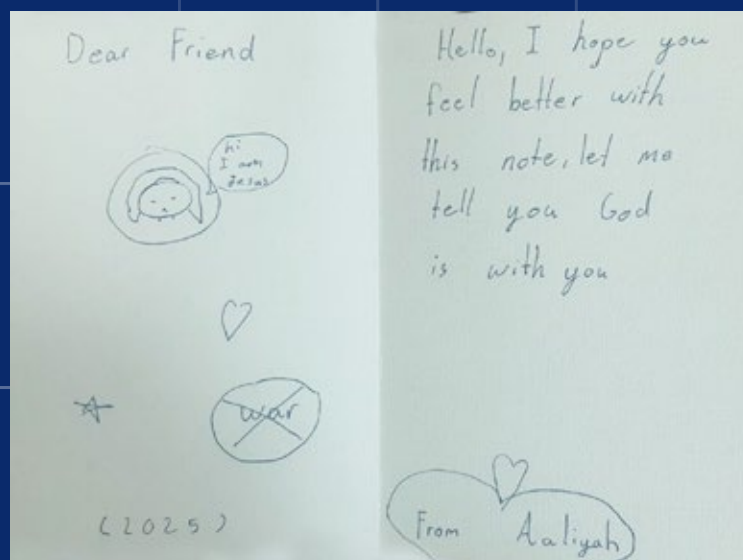 Dear Friend
hi
I am
Jesus
war
(2025)
Hello, I hope you
feel better with
this note, let me
tell you God
is with you
From Aaliyah